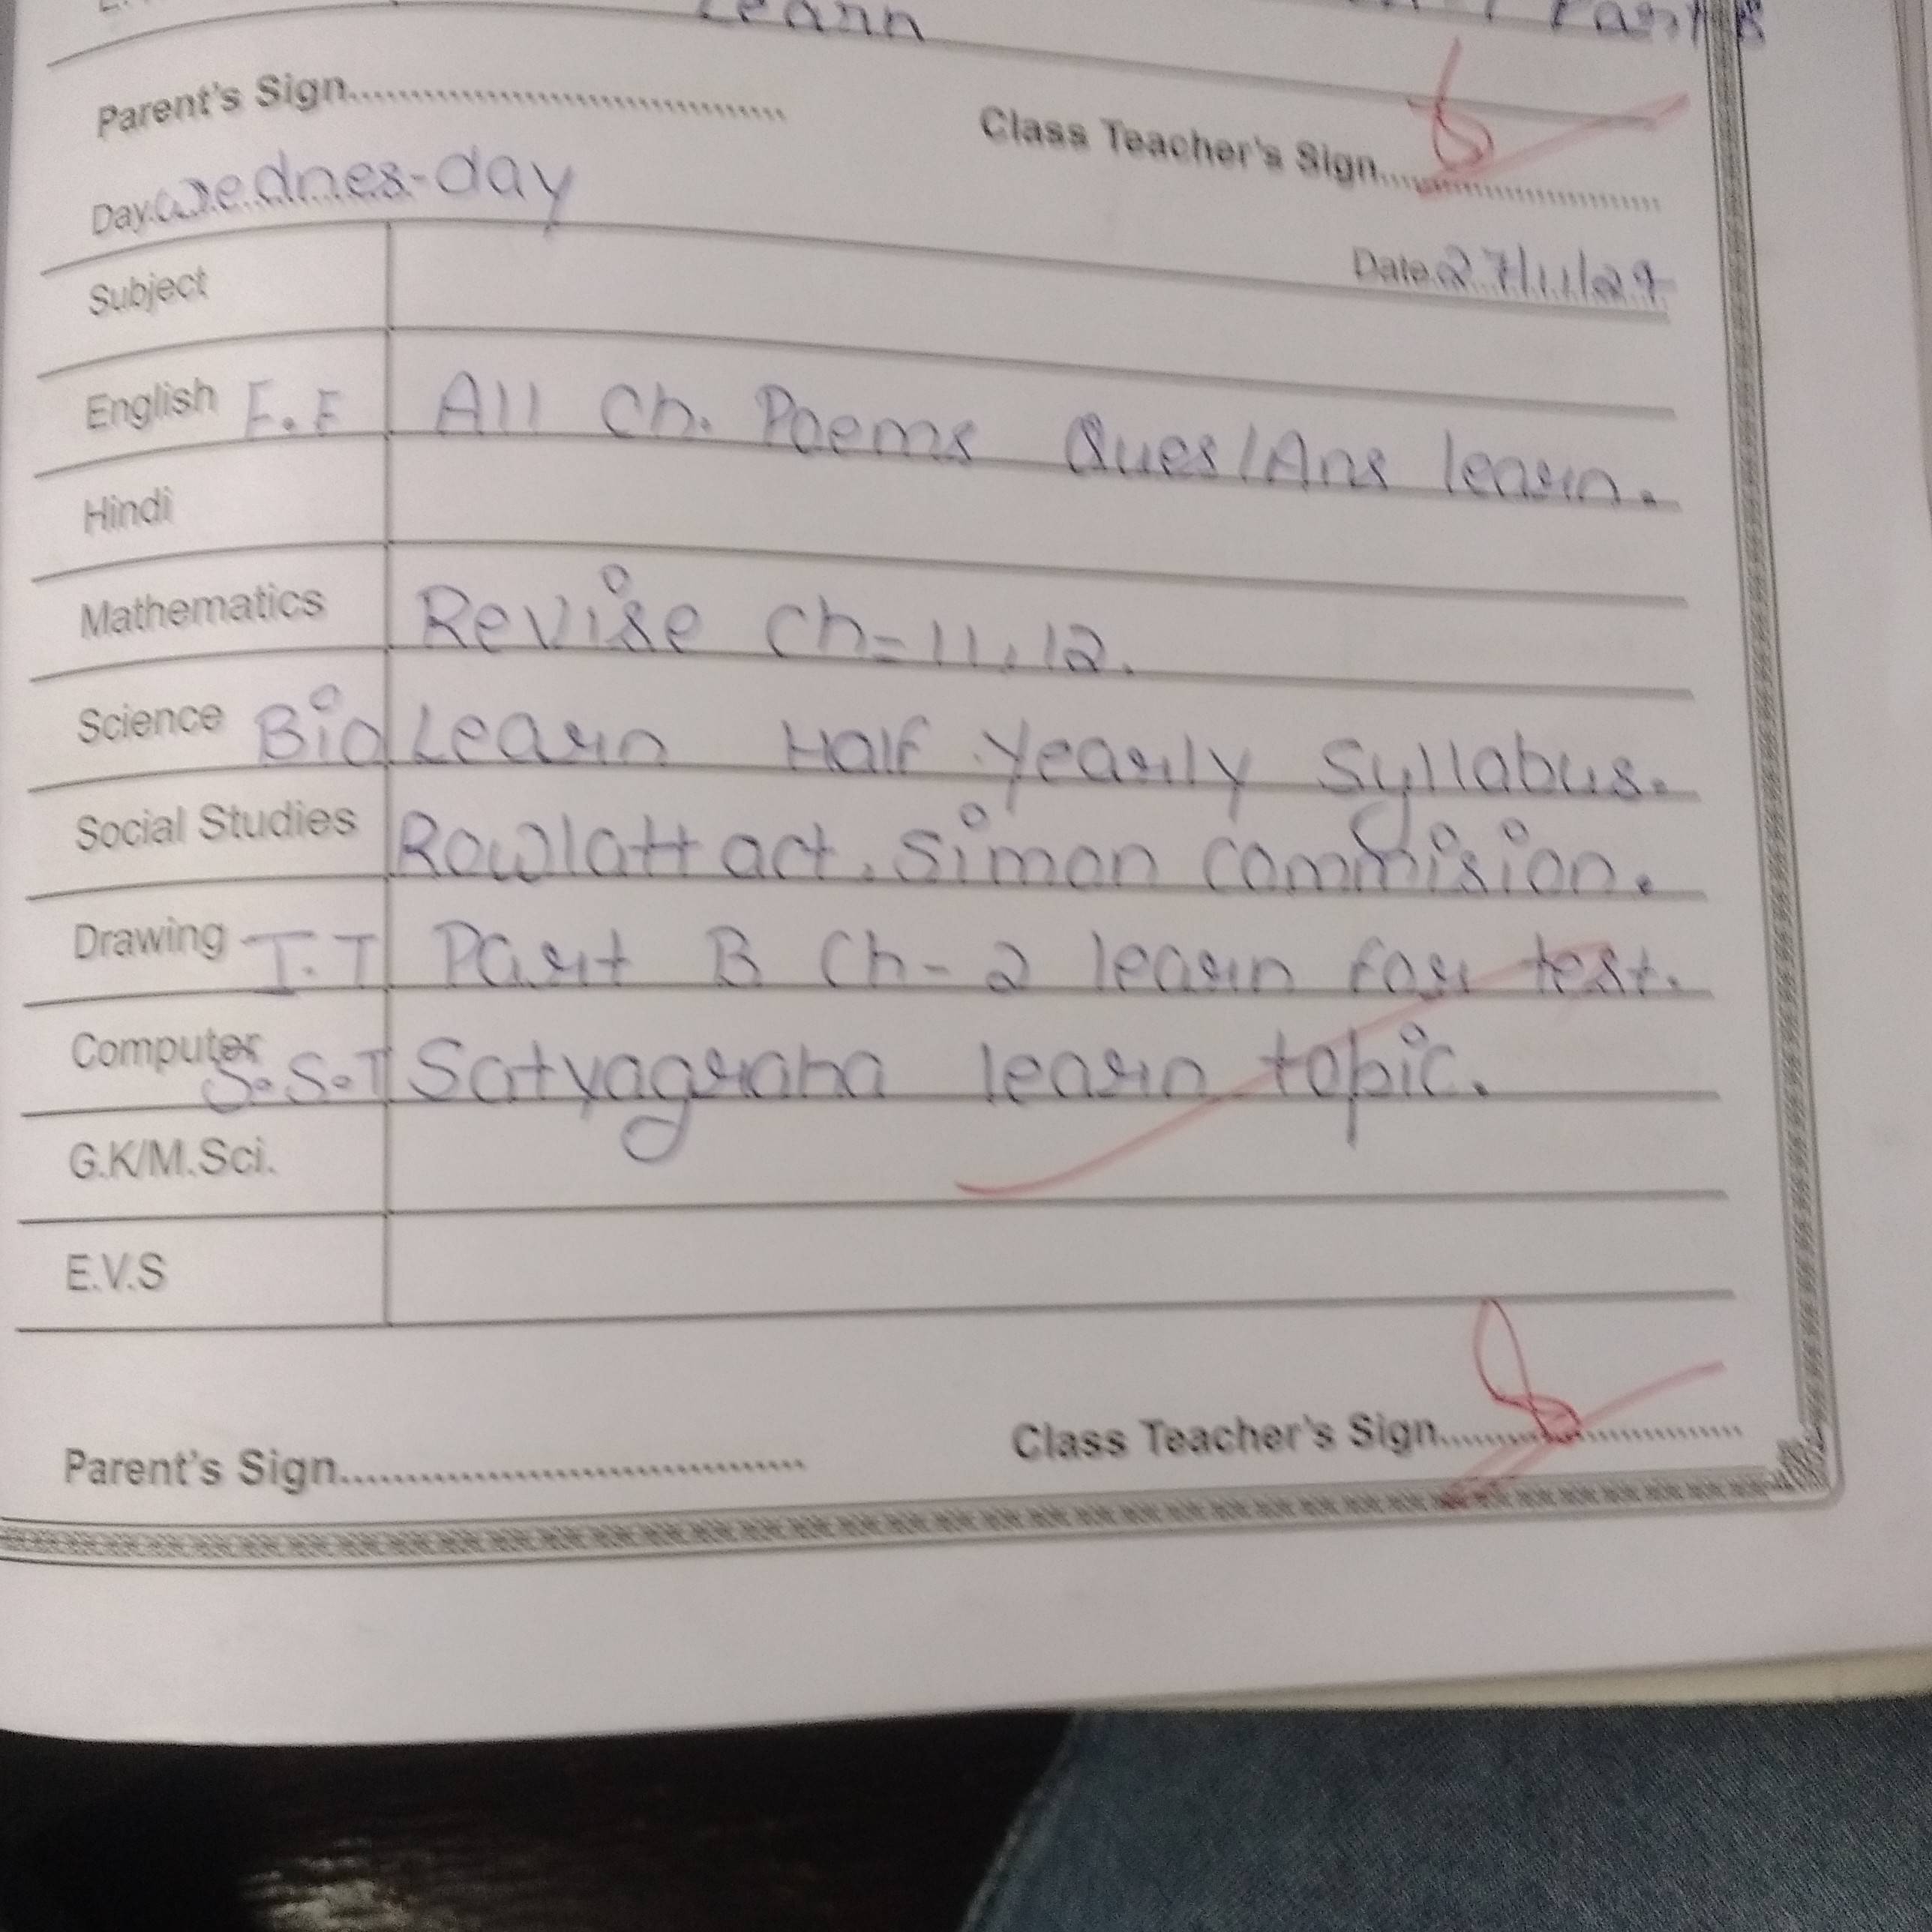 Learn
Parent's Sign
Class Teacher's Sign
Day Wednes-day
Date 27/11/24
Subject
English E.E All Ch. Poems Ques/Ans learn.
Hindi
Mathematics Revise Ch-11,12.
Science Bio Learn Half Yearly Syllabus.
Social Studies Rowlatt act, Simon Commision.
Drawing I.T Part B Ch-2 learn for test.
Computer S.S.T Satyagraha learn topic.
G.K/M.Sci.
E.V.S
Parent's Sign
Class Teacher's Sign